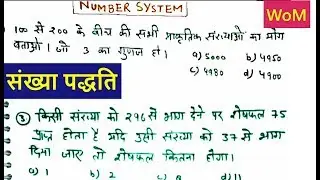 NUMBER SYSTEM
WoM
100 से 200 के बीच की सभी प्राकृतिक संख्याओं का योग
बताओ। जो 3 का गुणज हो।
a) 5000 b) 4950
c) 4980 d) 4900
संख्या पद्धति
③ किसी संख्या को 296 से भाग देने पर शेषफल 75
प्राप्त होता है यदि उसी संख्या को 37 से भाग
दिया जाए तो शेषफल कितना होगा।
a) 1 b) 2 d) 11